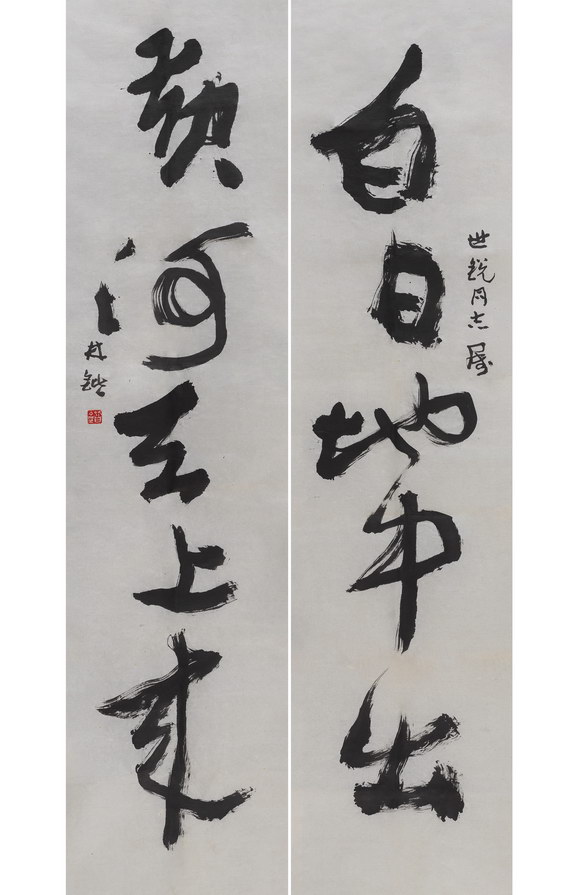 世锐同志属
白日地中出
黄河天上来
林锴